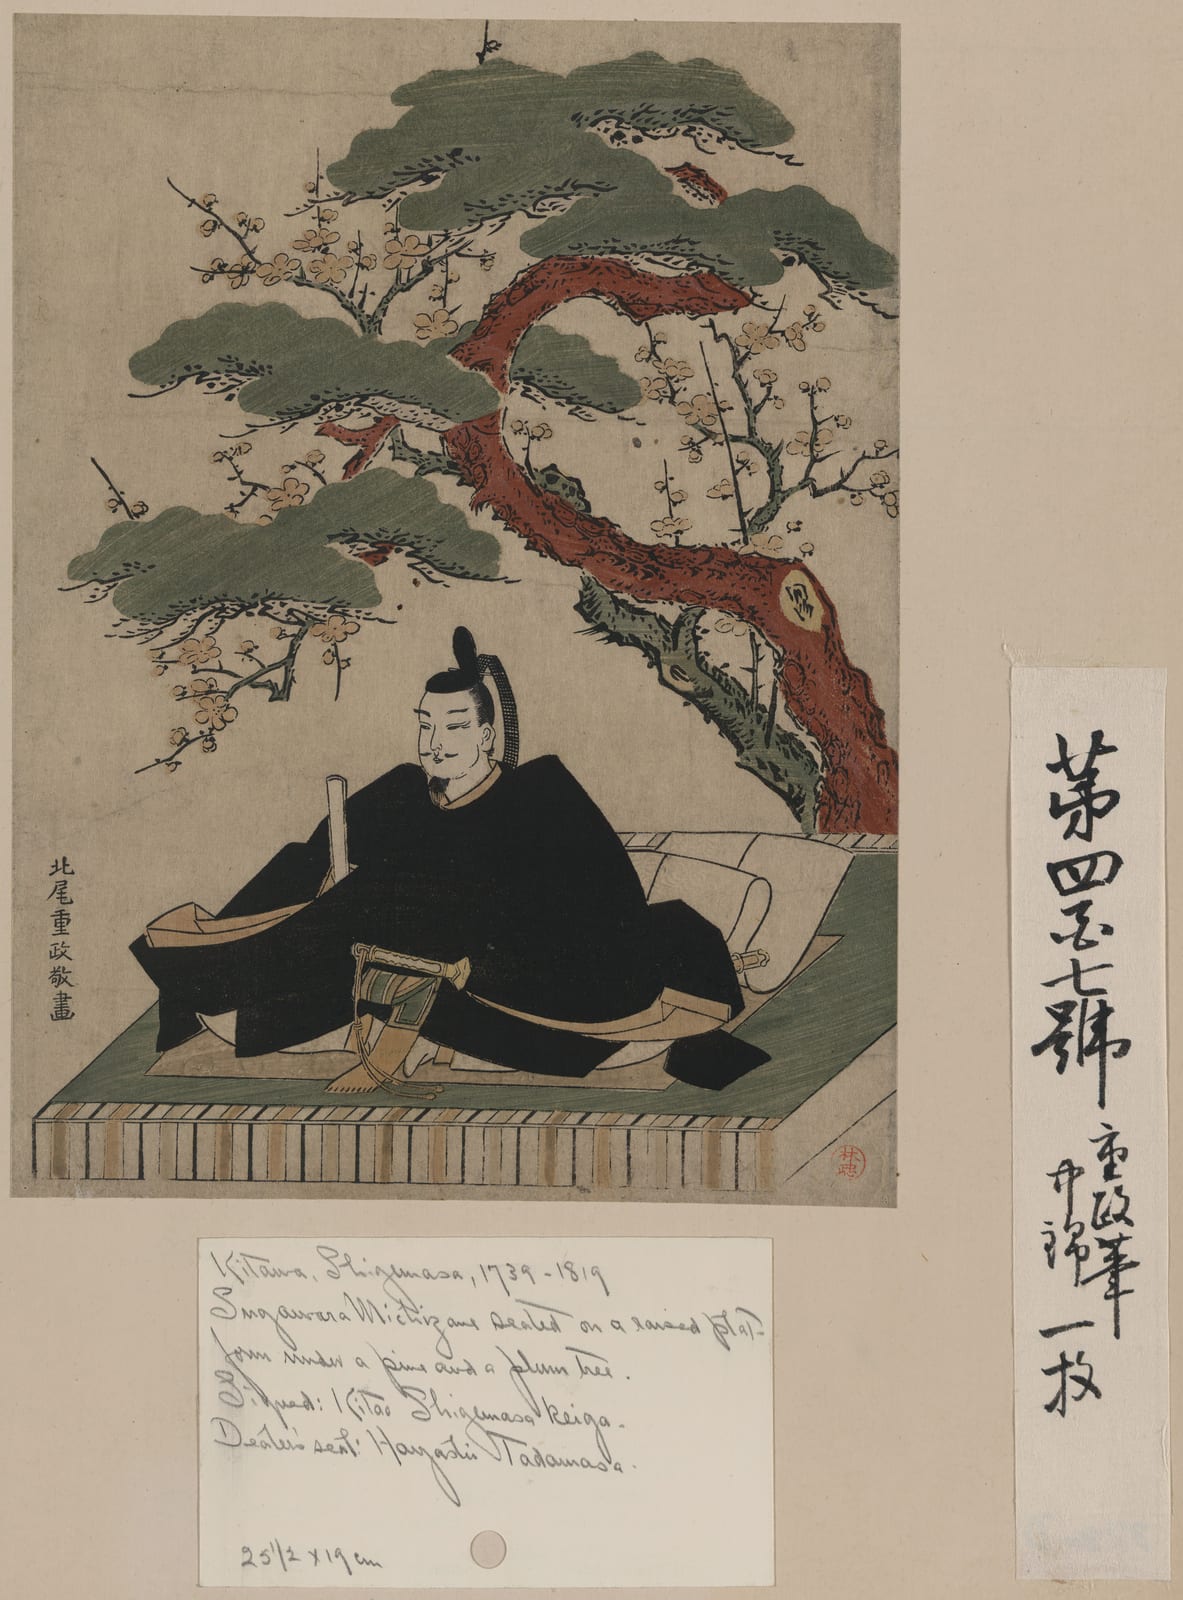 北尾重政敬畫
林忠
Kitawa, Shigemasa, 1739-1819
Sugawara Michizane seated on a raised plat-
form under a pine and a plum tree.
Signed: Kitao Shigemasa keiga.
Dealer's seal: Hayashi Tadamasa.
25 1/2 x 19 cm
第四百七號
重政筆
中錦
一枚